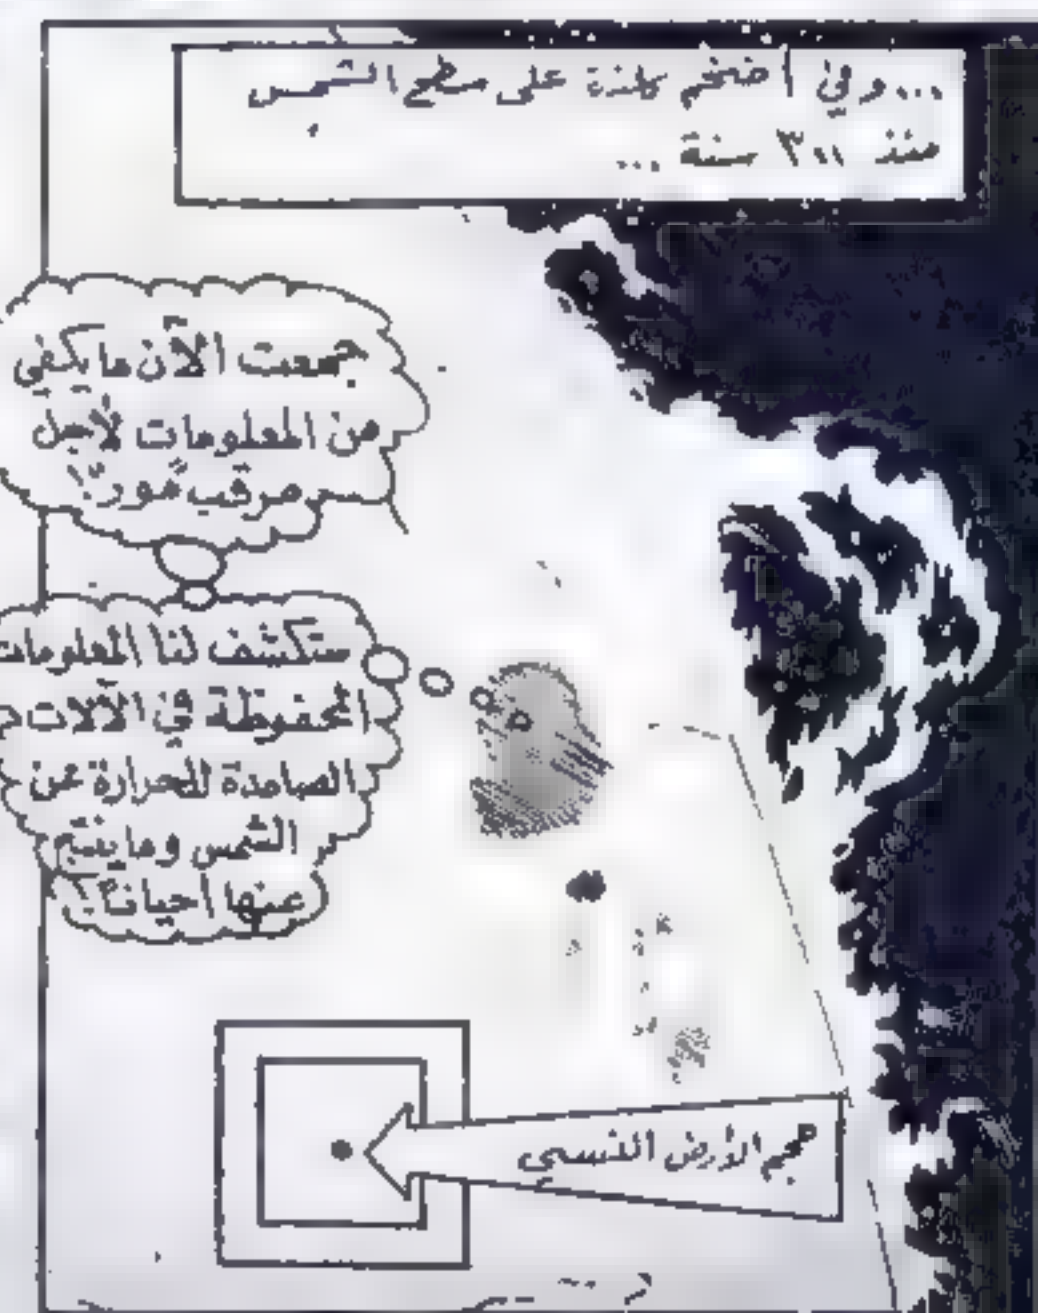 ...وفي أضخم كلفة على سطح الشمس
منذ ٣٠٠ سنة ...
جمعت الآن ما يكفي
من المعلومات لأجل
مرقب
ستكشف لنا المعلومات
المحفوظة في الآلات
الصامدة للحرارة عن
الشمس وما ينتج
عنها أحياناً؟
حجم الأرض النسبي